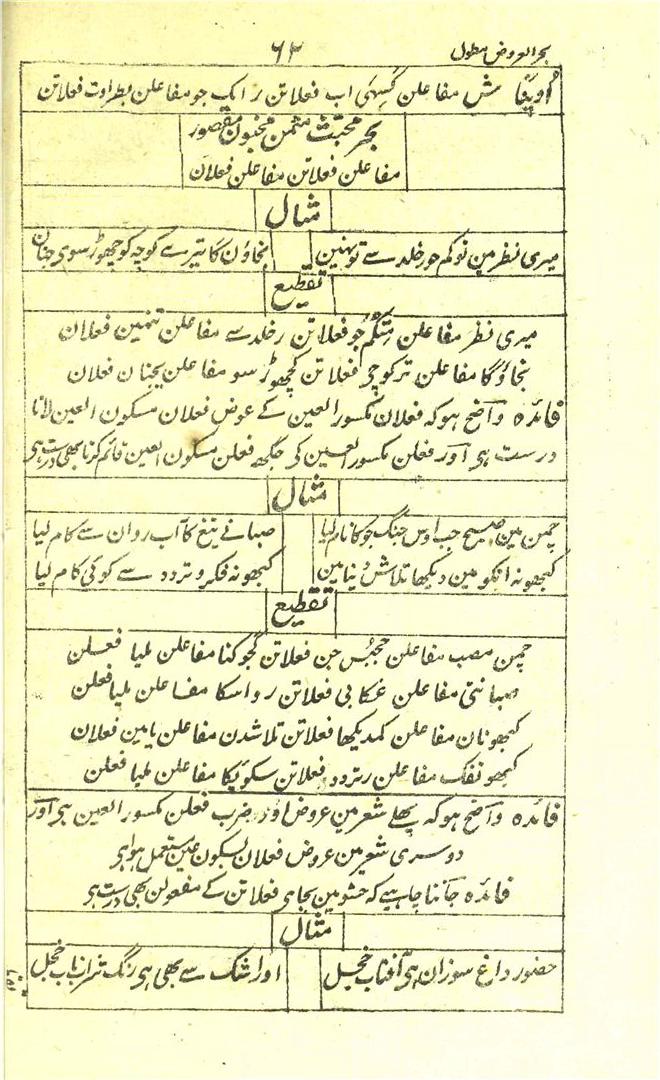 بحر العروض مطول
۶۲
مفاعلن فعلاتن ر ایک جو مفاعلن بطراوت فعلاتن
بحر مجتث مثمن مخبون مقصور
مفاعلن فعلاتن مفاعلن فعلان
مثال
میری نظر مین نو کم حور خلد سے تو نہین
نجاؤن گا تیرے کوچہ کو چھوڑ سوی جنان
تقطیع
میری نظر مفاعلن فعلاتن ر خلد سے مفاعلن تنہین فعلان
نجاؤگا مفاعلن تر کوچی فعلاتن کچھوڑ سو مفاعلن یجنان فعلان
فائدہ واضح ہو کہ فعلان مکسور العین کے عوض فعلان مسکون العین لانا
درست ہی اور فعلن مکسور العین کی جگھ فعلن مسکون العین قائم کرنا بھی درست ہی
مثال
چمن مین صبح جب اوس جنگ جو کا نام لیا
صبا نے تیغ کا آب روان سے کام لیا
کبھو نہ انکو مین دیکھا تلاش دنیا مین
کبھو نہ فکر و تردد سے کوئی کام لیا
تقطیع
چمن مصب مفاعلن حجبس جن فعلاتن گجو کنا مفاعلن ملیا فعلن
صبا نتی مفاعلن غکا بی فعلاتن ر وا سکا مفاعلن ملیا فعلن
کبھو نان مفاعلن کمدیکھا فعلاتن تلا شدن مفاعلن یا مین فعلان
کبھو نفک مفاعلن ر تردد فعلاتن سکوئیکا مفاعلن ملیا فعلن
فائدہ واضح ہو کہ پہلے شعر مین عروض اور ضرب فعلن مکسور العین ہی اور
دوسری شعر مین عروض فعلان بسکون عین مستعمل ہوا ہی
فائدہ جاننا چاہیے کہ حشو مین بجای فعلاتن کے مفعولن بھی درست ہی
مثال
حضور داغ سوزان ہی آفتاب خجل
اور اشک سے بھی ہی رنگ شراب ناب خجل